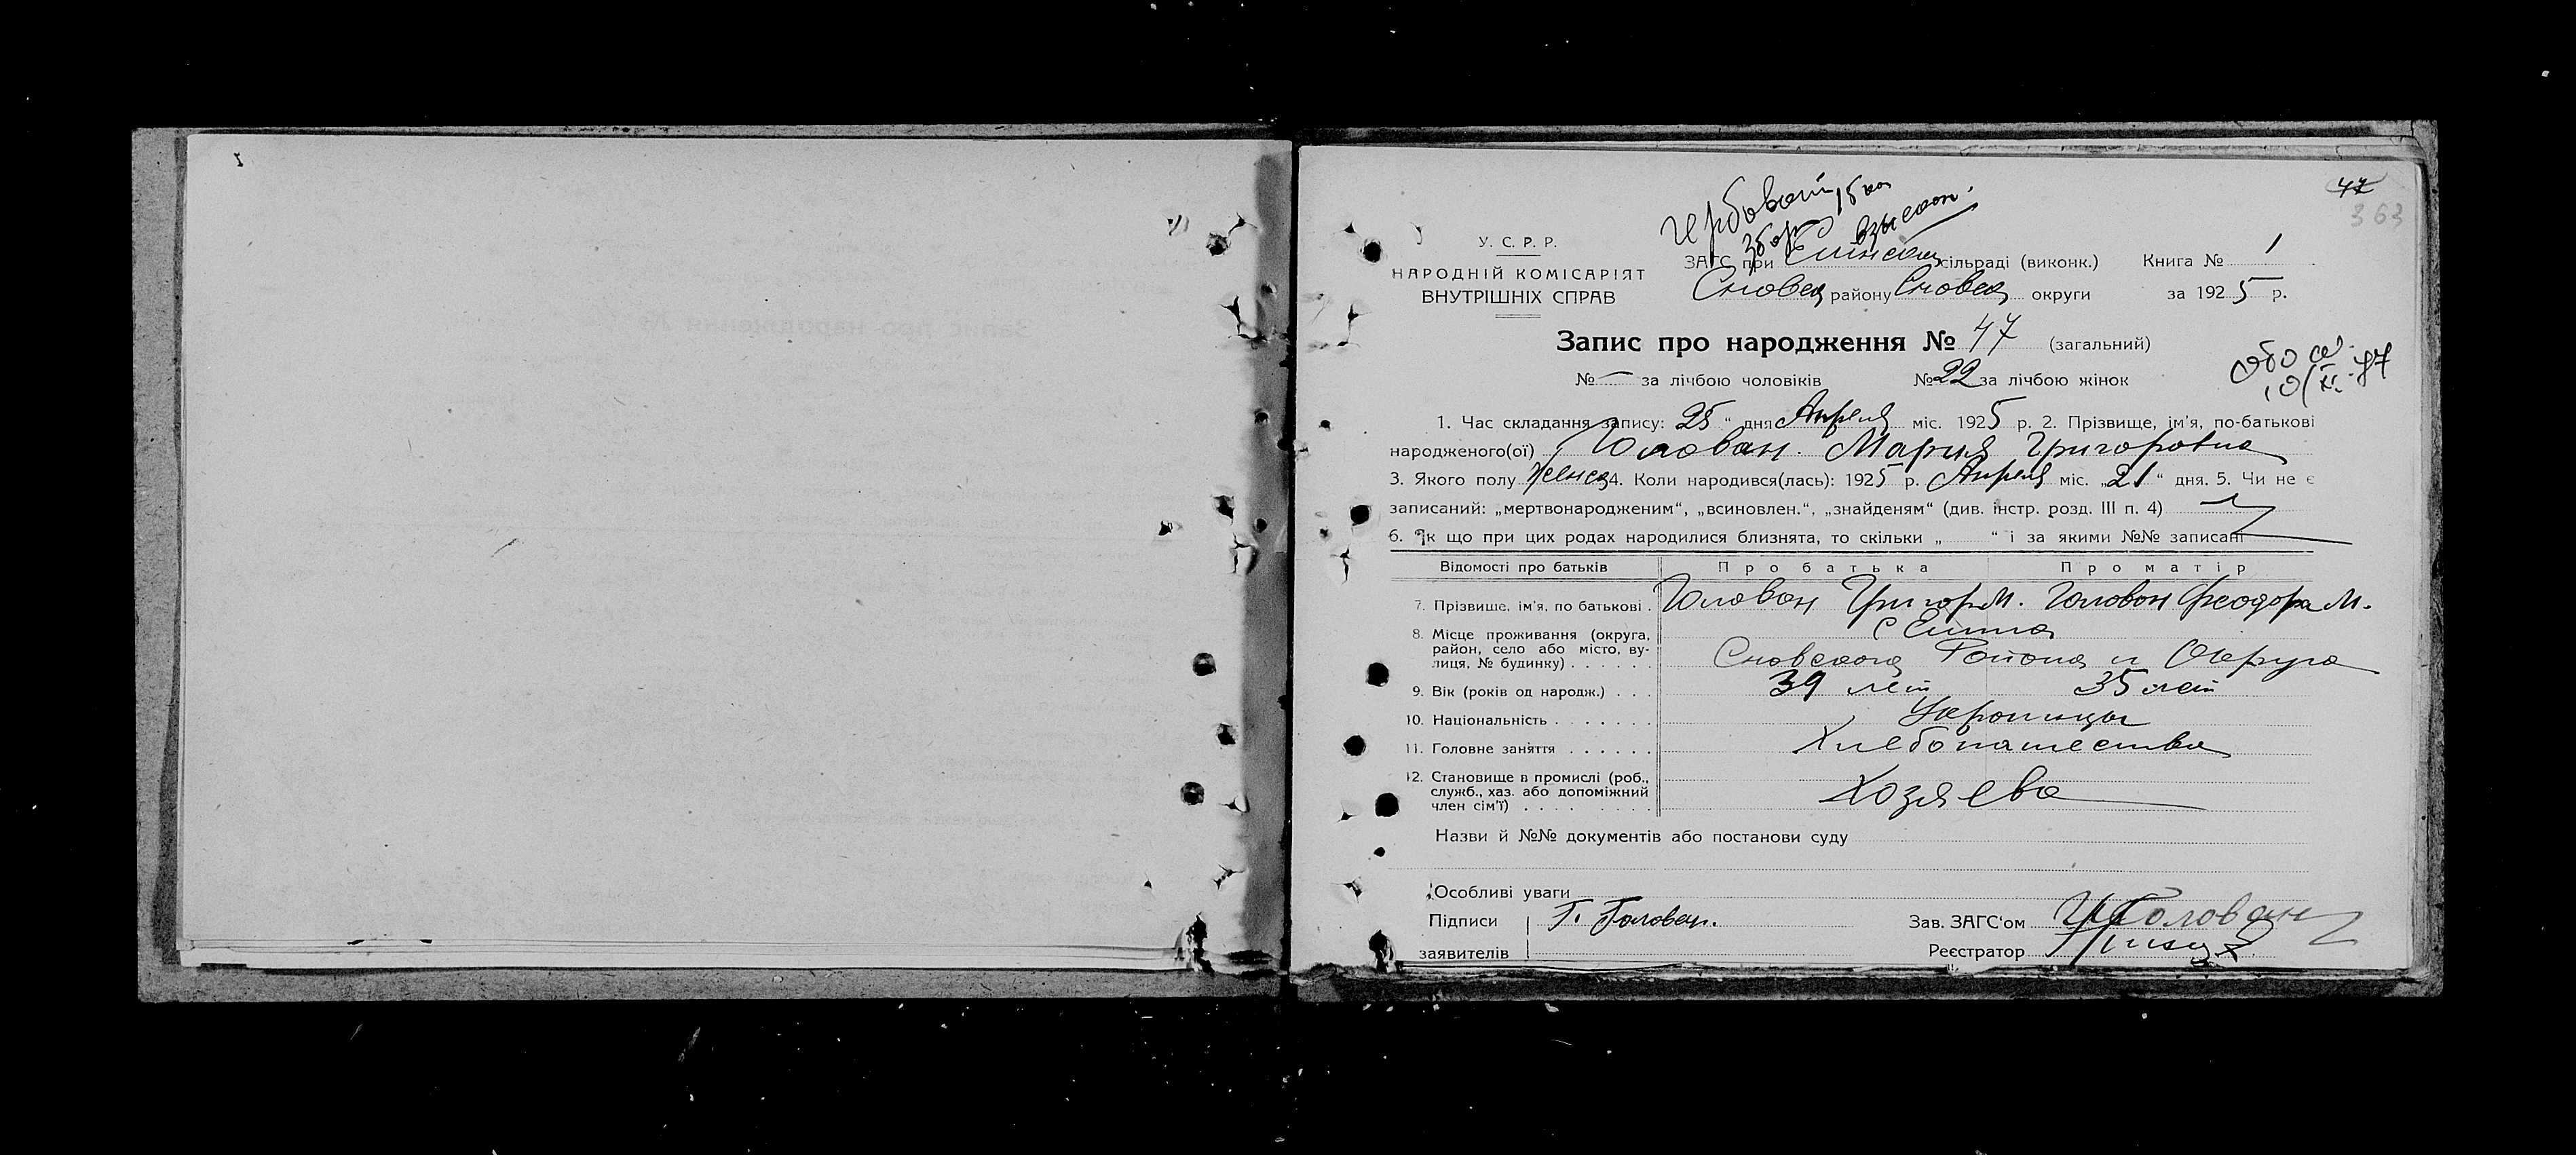 47
363
Гербовый 15 коп
збор взыскан.
У. С. Р. Р.
НАРОДНІЙ КОМІСАРІЯТ
ВНУТРІШНІХ СПРАВ
ЗАГС при сільраді (виконк.) Книга № 1
Сновск району Сновск округи за 1925 р.
Запис про народження № 47 (загальний)
№ — за лічбою чоловіків № 22 за лічбою жінок
1. Час складання запису: 25 “ дня Апреля міс. 1925 р. 2. Прізвище, ім'я, по-батькові
народженого(ої) Голован. Мария Григоровна
3. Якого полу Женск 4. Коли народився(лась): 1925 р. Апреля міс. „21“ дня. 5. Чи не є
записаний: „мертвонародженим“, „всиновлен.“, „знайденям“ (див. інстр. розд. III п. 4)
6. Як що при цих родах народилися близнята, то скільки „ “ і за якими №№ записані
Відомості про батьків Про батька Про матір
7. Прізвище, ім'я, по батькові . Голован Григор М. Голован Феодора М.
8. Місце проживання (округа,
район, село або місто, ву-
лиця, № будинку) . . . . . . Сновского Района и Округа
9. Вік (років од народж.) . . . 39 лет 35 лет
10. Національність . . . . . . . Украинцы
11. Головне заняття . . . . . . Хлебопашество
12. Становище в промислі (роб.,
служб., хаз. або допоміжний
член сім'ї) . . . . . . . . Хозяева
Назви й №№ документів або постанови суду
Особливі уваги
Підписи Г. Голован. Зав. ЗАГС'ом Голован
заявителів Реєстратор